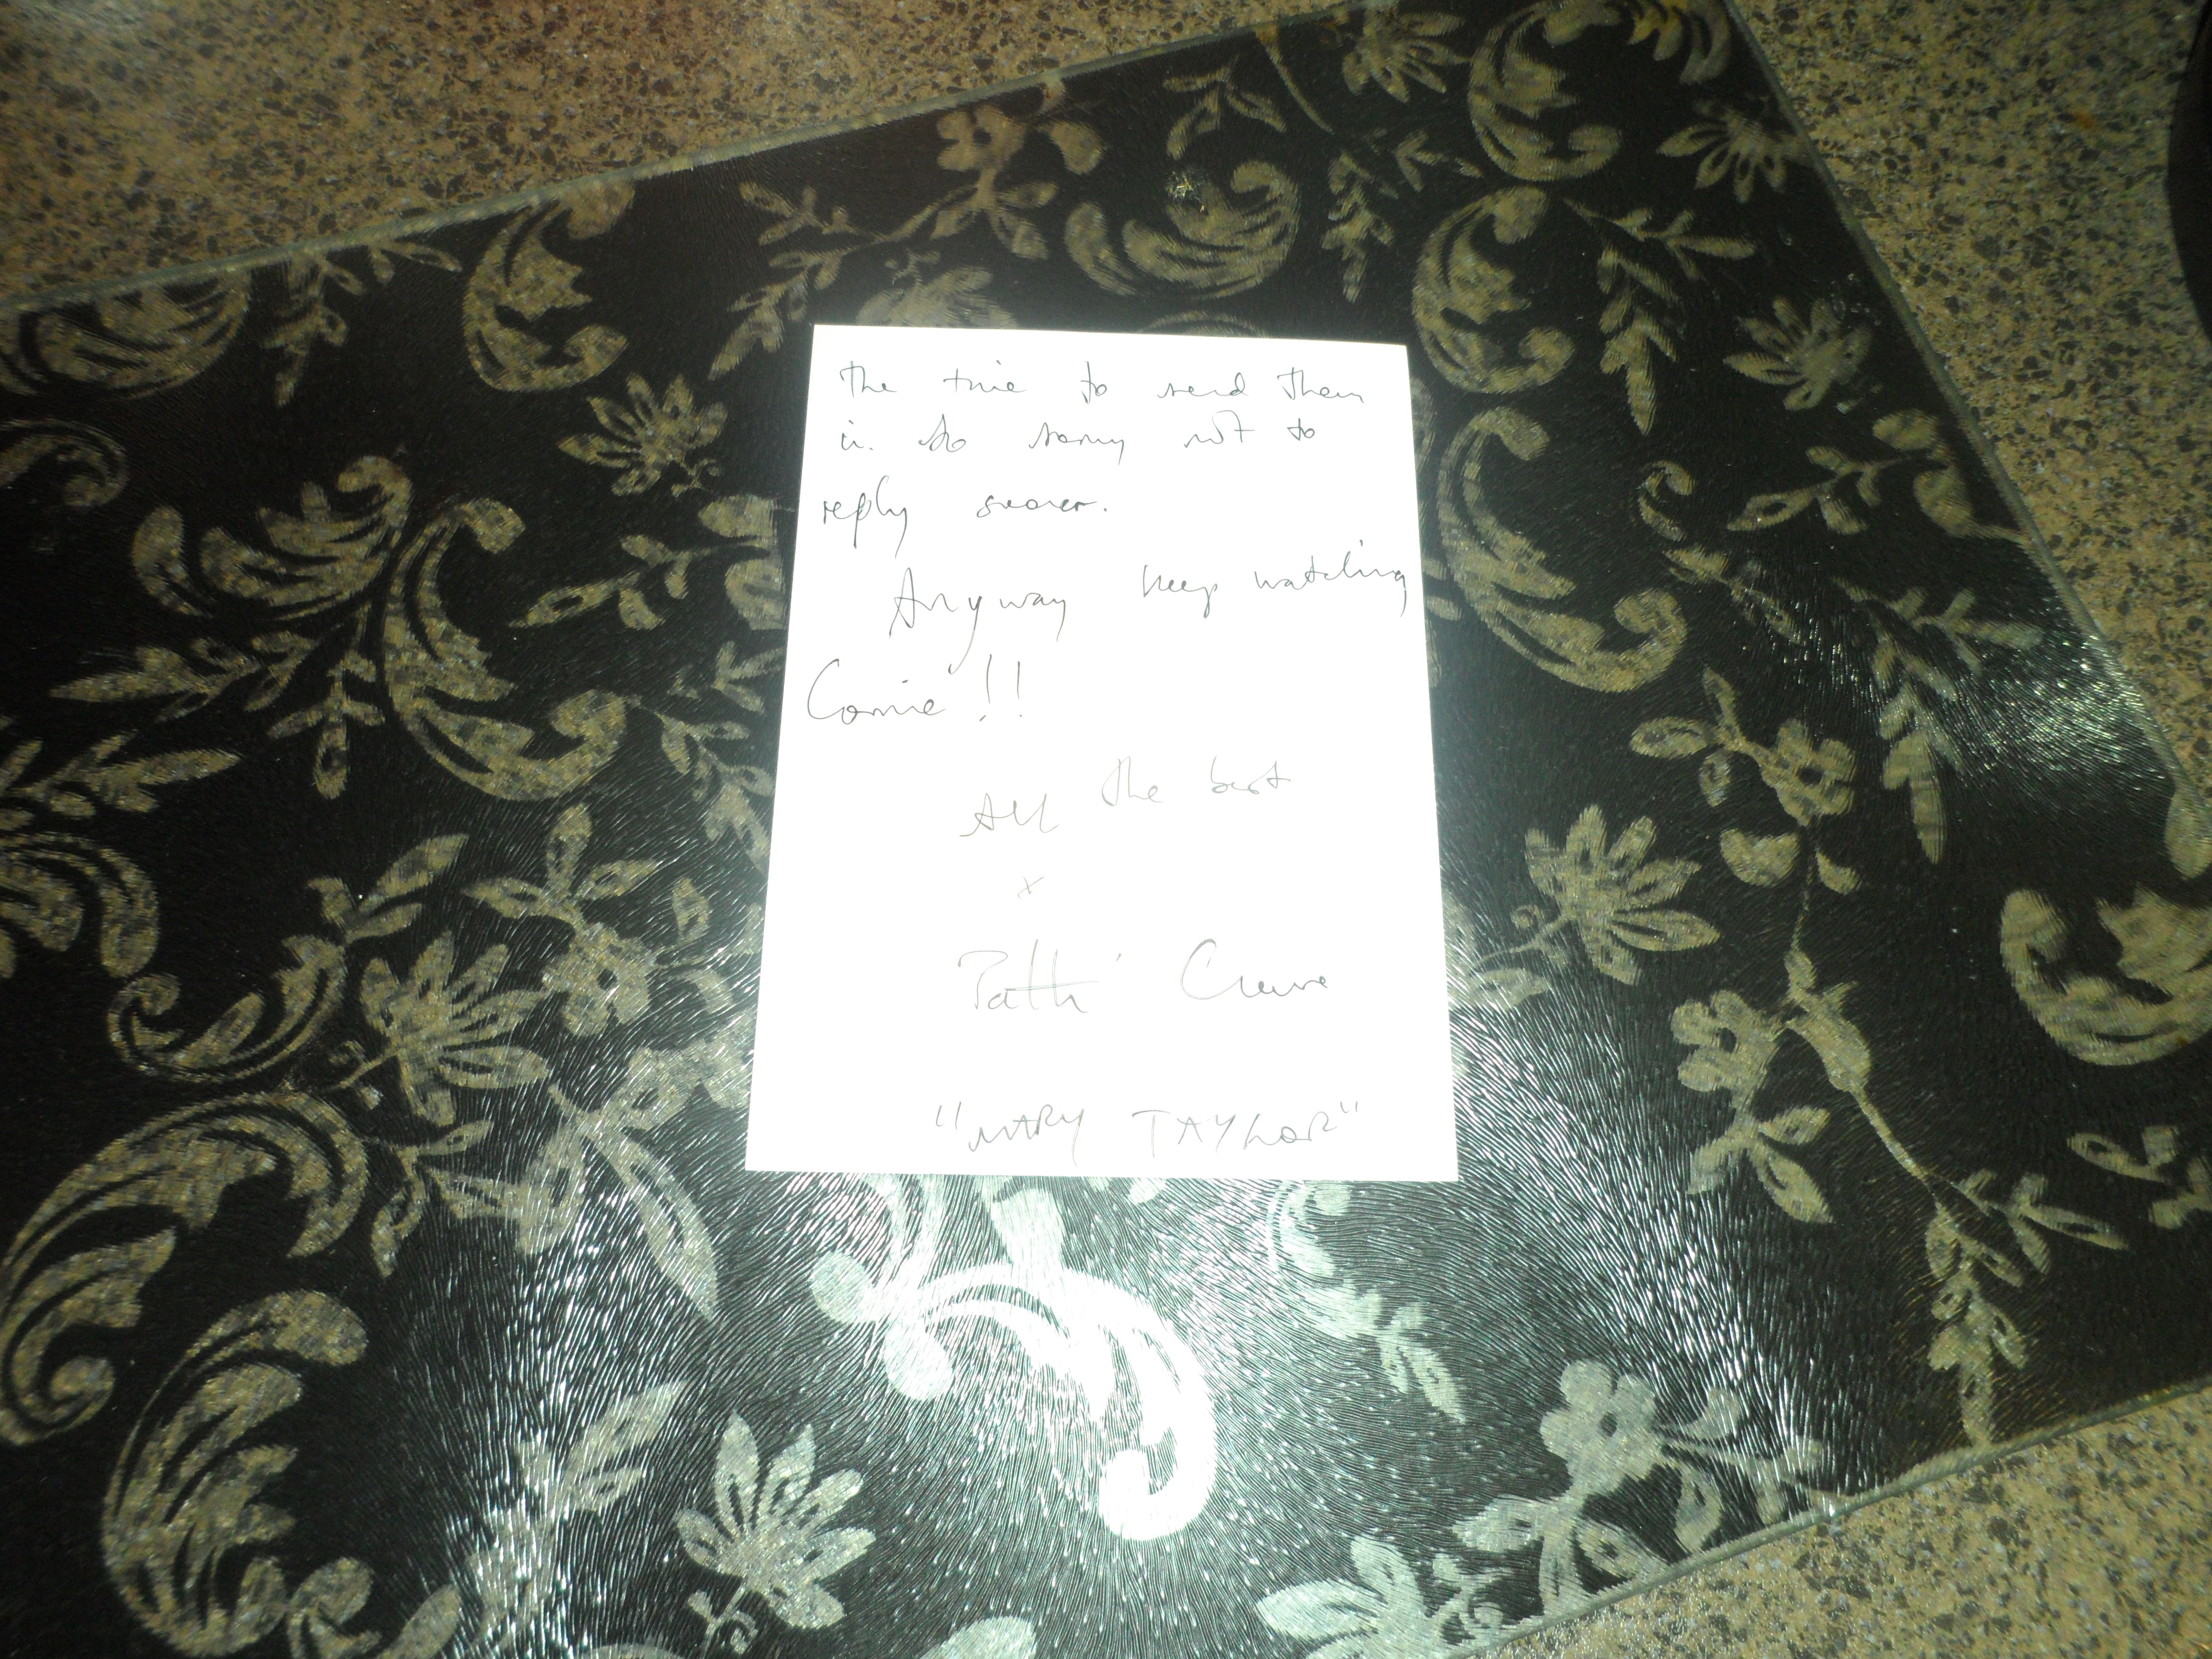 The time to send them
in. So sorry not to
reply sooner.
Anyway keep watching
Corrie!!
All the best
x
Patti Clare
"MARY TAYLOR"